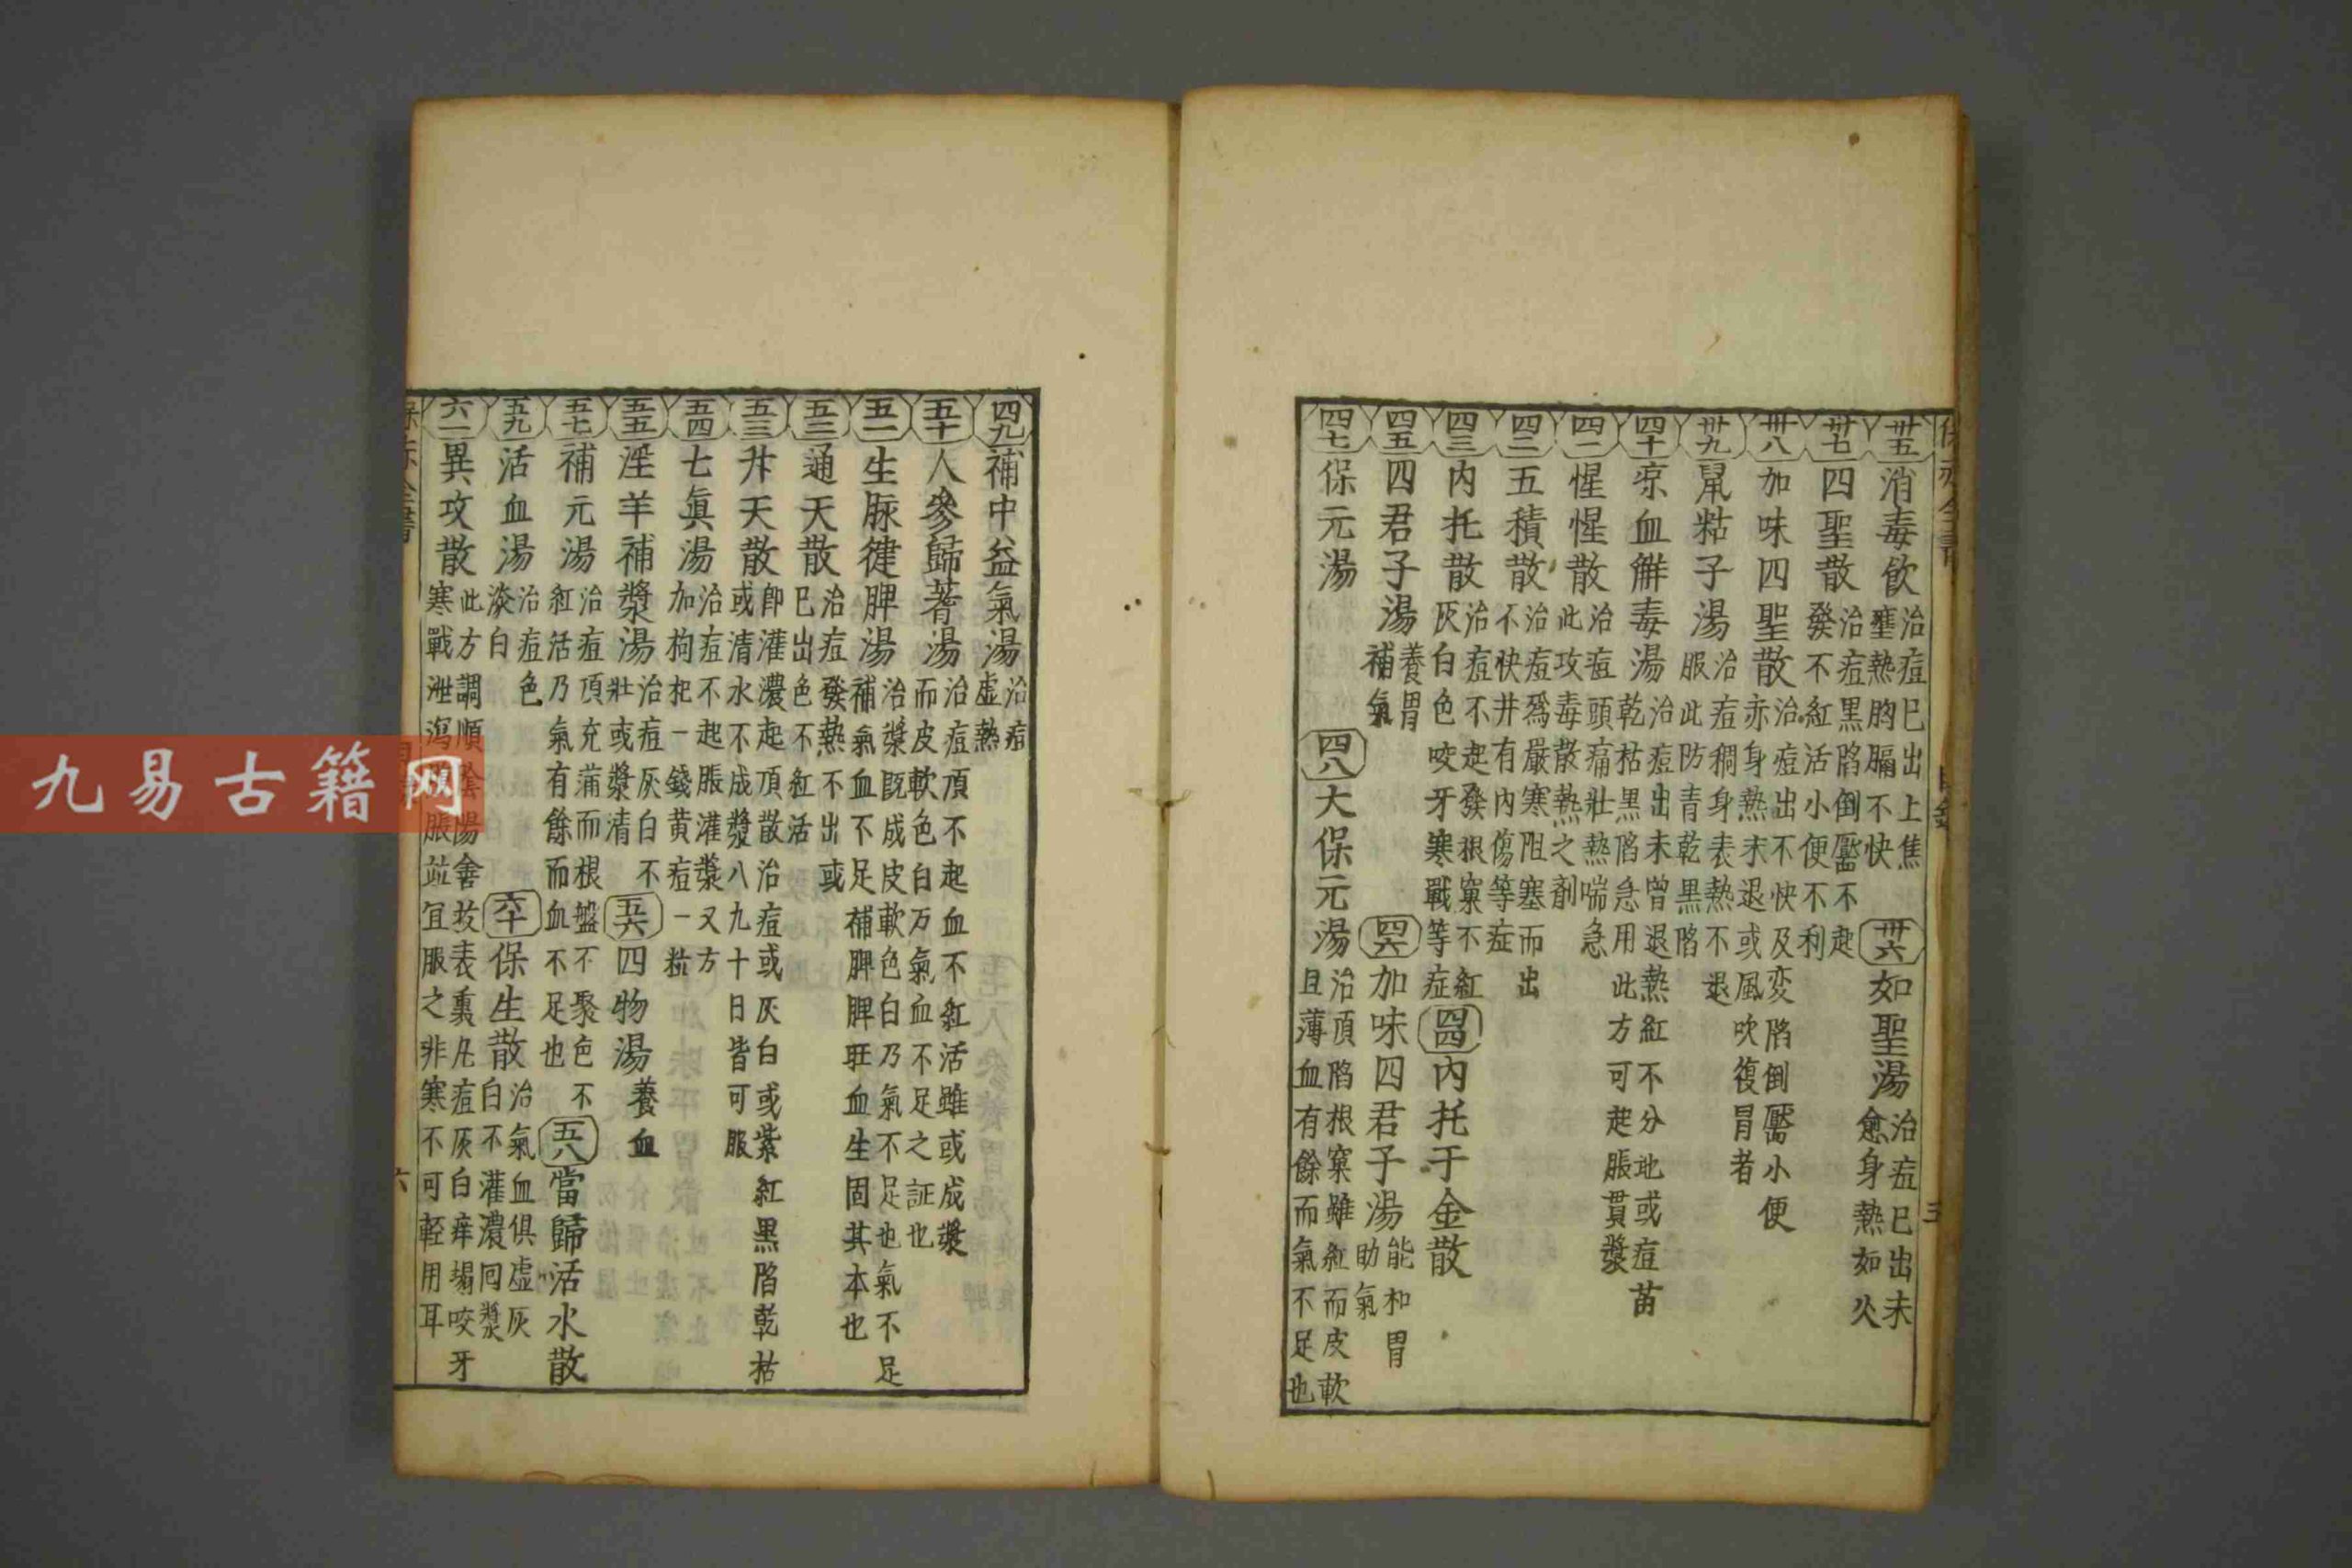 卅五 消毒飲 治痘已出上焦壅熱胸膈不快 卅六 如聖湯 治痘已出未愈身熱如火
卅七 四聖散 治痘黑陷倒靨不起發不紅活小便不利
卅八 加味四聖散 治痘出不快及变陷倒靨小便赤身熱未退或風吹復胃者
卅九 鼠粘子湯 治痘稠身表熱不退服此防青乾黑陷
四十 凉血觧毒湯 治痘出未曾退熱紅不分地或痘苗乾枯黑陷急用此方可起脹貫漿
四一 惺惺散 治痘頭痛壯熱喘急此攻毒散熱之劑
四二 五積散 治痘爲嚴寒阻塞而出不快井有內傷等症
四三 內托散 治痘不起發根窠不紅灰白色咬牙寒戰等症 四四 內托千金散
四五 四君子湯 養胃補氣 四六 加味四君子湯 能和胃助氣
四七 保元湯 四八 大保元湯 治頂陷根窠雖紅而皮軟且薄血有餘而氣不足也
四九 補中益氣湯 治痘虛熱
五十 人參歸蓍湯 治痘頂不起血不紅活雖或成漿而皮軟色白万氣血不足之証也
五一 生脉健脾湯 治漿既成皮軟色白乃氣不足也氣不足補氣血不足補脾脾旺血生固其本也
五二 通天散 治痘發熱不出或已出色不紅活
五三 升天散 卽灌濃起頂散治痘或灰白或紫紅黑陷乾枯或清水不成漿八九十日皆可服
五四 七眞湯 治痘不起脹灌漿又方加枸杞一錢黄痘一粒
五五 淫羊補漿湯 治痘灰白不壯或漿清 五六 四物湯 養血
五七 補元湯 治痘頂充滿而根盤不聚色不紅活乃氣有餘而血不足也 五八 當歸活水散
五九 活血湯 治痘色淡白 六十 保生散 治氣血俱虛灰白不灌濃囘漿
六一 異攻散 此方調順陰陽
九易古籍网